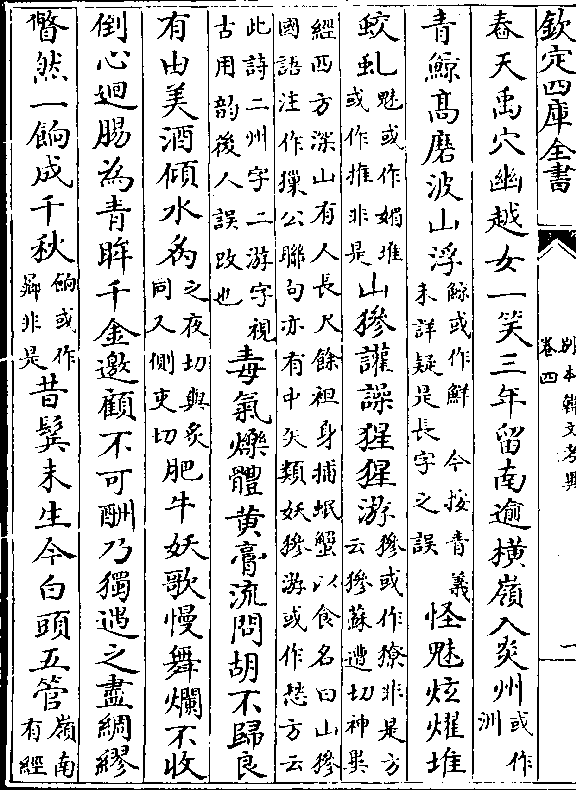 欽定四庫全書
別本韓文考異
卷四
一
春天禹穴幽越女一笑三年留南逾橫嶺入炎州或作
洲
青鯨髙磨波山浮鯨或作鮮　今按青義
未詳疑是長字之誤怪魅炫燿堆
蛟虬魅或作媚堆
或作推非是山㺑讙譟猩猩游㺑或作獠非是方
云㺑蘇遭切神異
經西方深山有人長尺餘袒身捕蝦蟹以食名曰山㺑
國語注作獵公聯句亦有中矢類妖㺑游或作愁方云
此詩二州字二游字視
古用韵後人誤改也毒氣爍體黄膏流問胡不歸良
有由美酒傾水𤆬之夜切與炙
同又側吏切肥牛妖歌慢舞爛不收
倒心迴腸為青眸千金邀顧不可酬乃獨遇之盡綢繆
瞥然一餉成千秋餉或作
昔鬂未生今白頭五管嶺南
有經